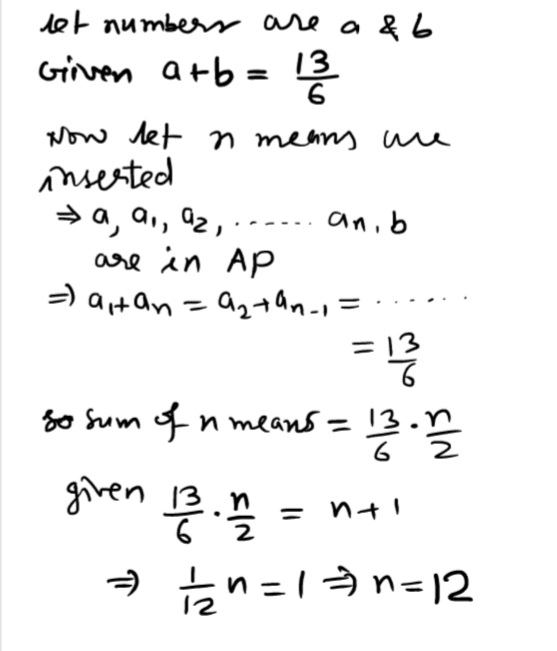 let numbers are a & b
Given a+b = 13/6
Now let n means are
inserted
⇒ a, a₁, a₂, ....... aₙ, b
are in AP
⇒ a₁+aₙ = a₂+aₙ₋₁ = ......
= 13/6
so sum of n means = 13/6 · n/2
given 13/6 · n/2 = n+1
⇒ 1/12 n = 1 ⇒ n = 12